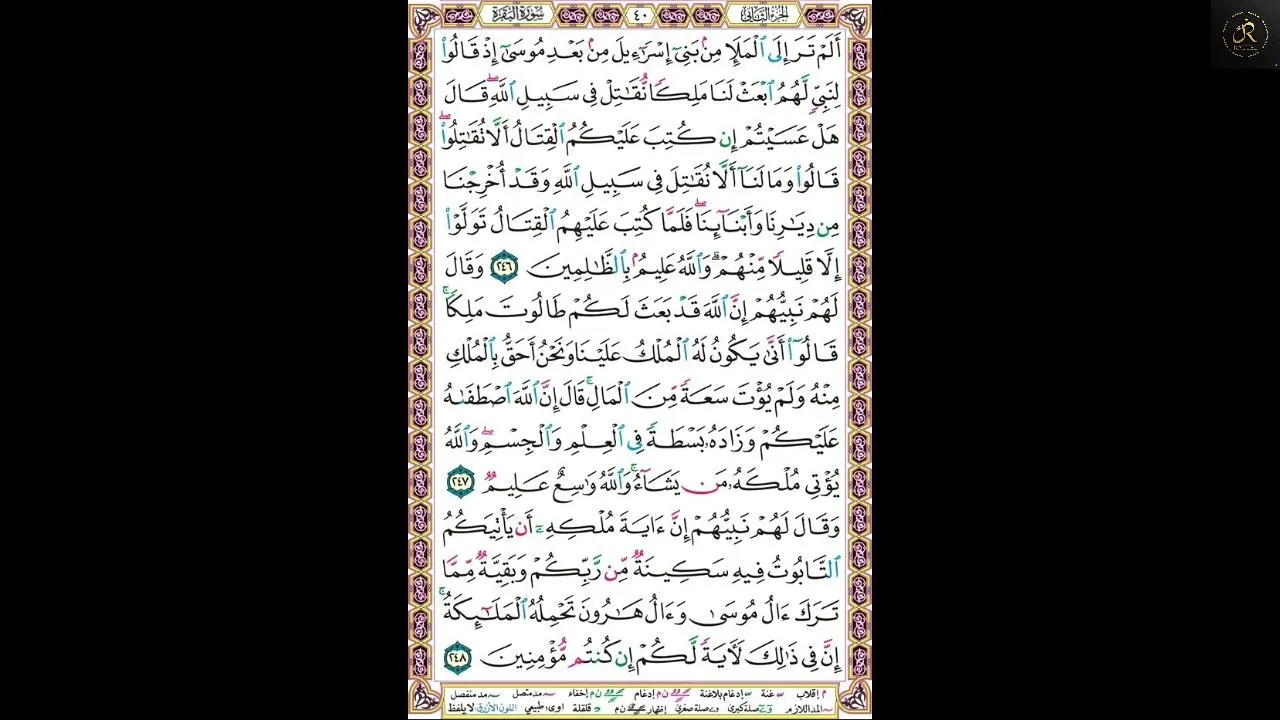 الجزء الثاني ٤٠ سورة البقرة
أَلَمْ تَرَ إِلَى ٱلْمَلَإِ مِنۢ بَنِىٓ إِسْرَٰٓءِيلَ مِنۢ بَعْدِ مُوسَىٰٓ إِذْ قَالُوا۟
لِنَبِىٍّ لَّهُمُ ٱبْعَثْ لَنَا مَلِكًا نُّقَٰتِلْ فِى سَبِيلِ ٱللَّهِ ۖ قَالَ
هَلْ عَسَيْتُمْ إِن كُتِبَ عَلَيْكُمُ ٱلْقِتَالُ أَلَّا تُقَٰتِلُوا۟ ۖ
قَالُوا۟ وَمَا لَنَآ أَلَّا نُقَٰتِلَ فِى سَبِيلِ ٱللَّهِ وَقَدْ أُخْرِجْنَا
مِن دِيَٰرِنَا وَأَبْنَآئِنَا ۖ فَلَمَّا كُتِبَ عَلَيْهِمُ ٱلْقِتَالُ تَوَلَّوْا۟
إِلَّا قَلِيلًا مِّنْهُمْ ۗ وَٱللَّهُ عَلِيمٌۢ بِٱلظَّٰلِمِينَ ٢٤٦ وَقَالَ
لَهُمْ نَبِيُّهُمْ إِنَّ ٱللَّهَ قَدْ بَعَثَ لَكُمْ طَالُوتَ مَلِكًا ۚ
قَالُوٓا۟ أَنَّىٰ يَكُونُ لَهُ ٱلْمُلْكُ عَلَيْنَا وَنَحْنُ أَحَقُّ بِٱلْمُلْكِ
مِنْهُ وَلَمْ يُؤْتَ سَعَةً مِّنَ ٱلْمَالِ ۚ قَالَ إِنَّ ٱللَّهَ ٱصْطَفَىٰهُ
عَلَيْكُمْ وَزَادَهُۥ بَسْطَةً فِى ٱلْعِلْمِ وَٱلْجِسْمِ ۖ وَٱللَّهُ
يُؤْتِى مُلْكَهُۥ مَن يَشَآءُ ۚ وَٱللَّهُ وَٰسِعٌ عَلِيمٌ ٢٤٧
وَقَالَ لَهُمْ نَبِيُّهُمْ إِنَّ ءَايَةَ مُلْكِهِۦٓ أَن يَأْتِيَكُمُ
ٱلتَّابُوتُ فِيهِ سَكِينَةٌ مِّن رَّبِّكُمْ وَبَقِيَّةٌ مِّمَّا
تَرَكَ ءَالُ مُوسَىٰ وَءَالُ هَٰرُونَ تَحْمِلُهُ ٱلْمَلَٰٓئِكَةُ ۚ
إِنَّ فِى ذَٰلِكَ لَءَايَةً لَّكُمْ إِن كُنتُم مُّؤْمِنِينَ ٢٤٨
م إقلاب غنة إدغام بلاغنة ن م إدغام ن م إخفاء مد متصل مد منفصل
المد اللازم صلة كبرى صلة صغرى إظهار ن م قلقلة اوى، طبيعي اللون الأزرق لا يلفظ